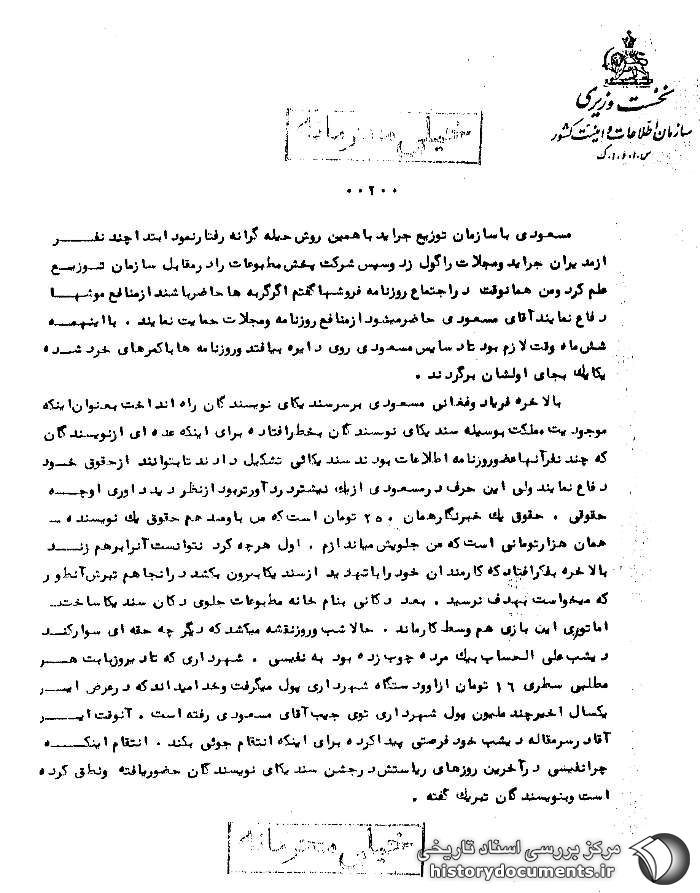 نخست وزیری
سازمان اطلاعات و امنیت کشور
س.ا.و.ا.ک
خیلی محرمانه
۰۰۲۰۰
مسعودی با سازمان توزیع جراید با همین روش حیله گرانه رفتار نمود ابتدا چند نفر
از مدیران جراید و مجلات را گول زد و سپس شرکت پخش مطبوعات را در مقابل سازمان توزیع
علم کرد و من همانوقت در اجتماع روزنامه فروشها گفتم اگر گربه ها حاضر باشند از منافع موشها
دفاع نمایند آقای مسعودی حاضر میشود از منافع روزنامه و مجلات حمایت نمایند . با اینهمه
شش ماه وقت لازم بود تا دسایس مسعودی روی دایره بیافتد و روزنامه ها با کمرهای خرد شده
یکایك بجای اولشان برگردند .
بالاخره فریاد و فغانی مسعودی بر سر سندیکای نویسندگان راه انداخت بعنوان اینکه
موجودیت مملکت بوسیله سندیکای نویسندگان بخطر افتاده برای اینکه عده ای از نویسندگان
که چند نفر آنها عضو روزنامه اطلاعات بودند سندیکائی تشکیل دادند تا بتوانند از حقوق خود
دفاع نمایند ولی این حرف در مسعودی از یك نیشتر درد آورتر بود از نظر دید داوری او چه
حقوقی . حقوق یك خبرنگار همان ۲۵۰ تومان است که من باو میدهم حقوق یك نویسنده
همان هزار تومانی است که من جلویش میاندازم . اول هر چه کرد نتوانست آنرا بر هم زند
بالاخره بفکر افتاد که کارمندان خود را با تهدید از سندیکا بیرون بکشد در انجا هم تیرش آنطور
که میخواست بهدف نرسید . بعد دکانی بنام خانه مطبوعات جلوی دکان سندیکا ساخت
اما توری این بازی هم وسط کار ماند . حالا شب و روز نقشه میکشد که دیگر چه حقه ای سوار کند
دیشب علی الحساب بیك مرده چوب زده بود به نفیسی . شهرداری که تا دیروز بابت هر
مطلبی سطری ۱۶ تومان از او و دستگاه شهرداری پول میگرفت و خدا میداند که در عرض این
یکسال اخیر چند ملیون پول شهرداری توی جیب آقای مسعودی رفته است . آنوقت این
آقا در سرمقاله دیشب خود فرصتی پیدا کرده برای اینکه انتقام جوئی بکند . انتقام اینکه
چرا نفیسی در آخرین روزهای ریاستش در جشن سندیکای نویسندگان حضور یافته و نطقی کرده
است و بنویسندگان تبریك گفته .
خیلی محرمانه
مرکز بررسی اسناد تاریخی
historydocuments.ir